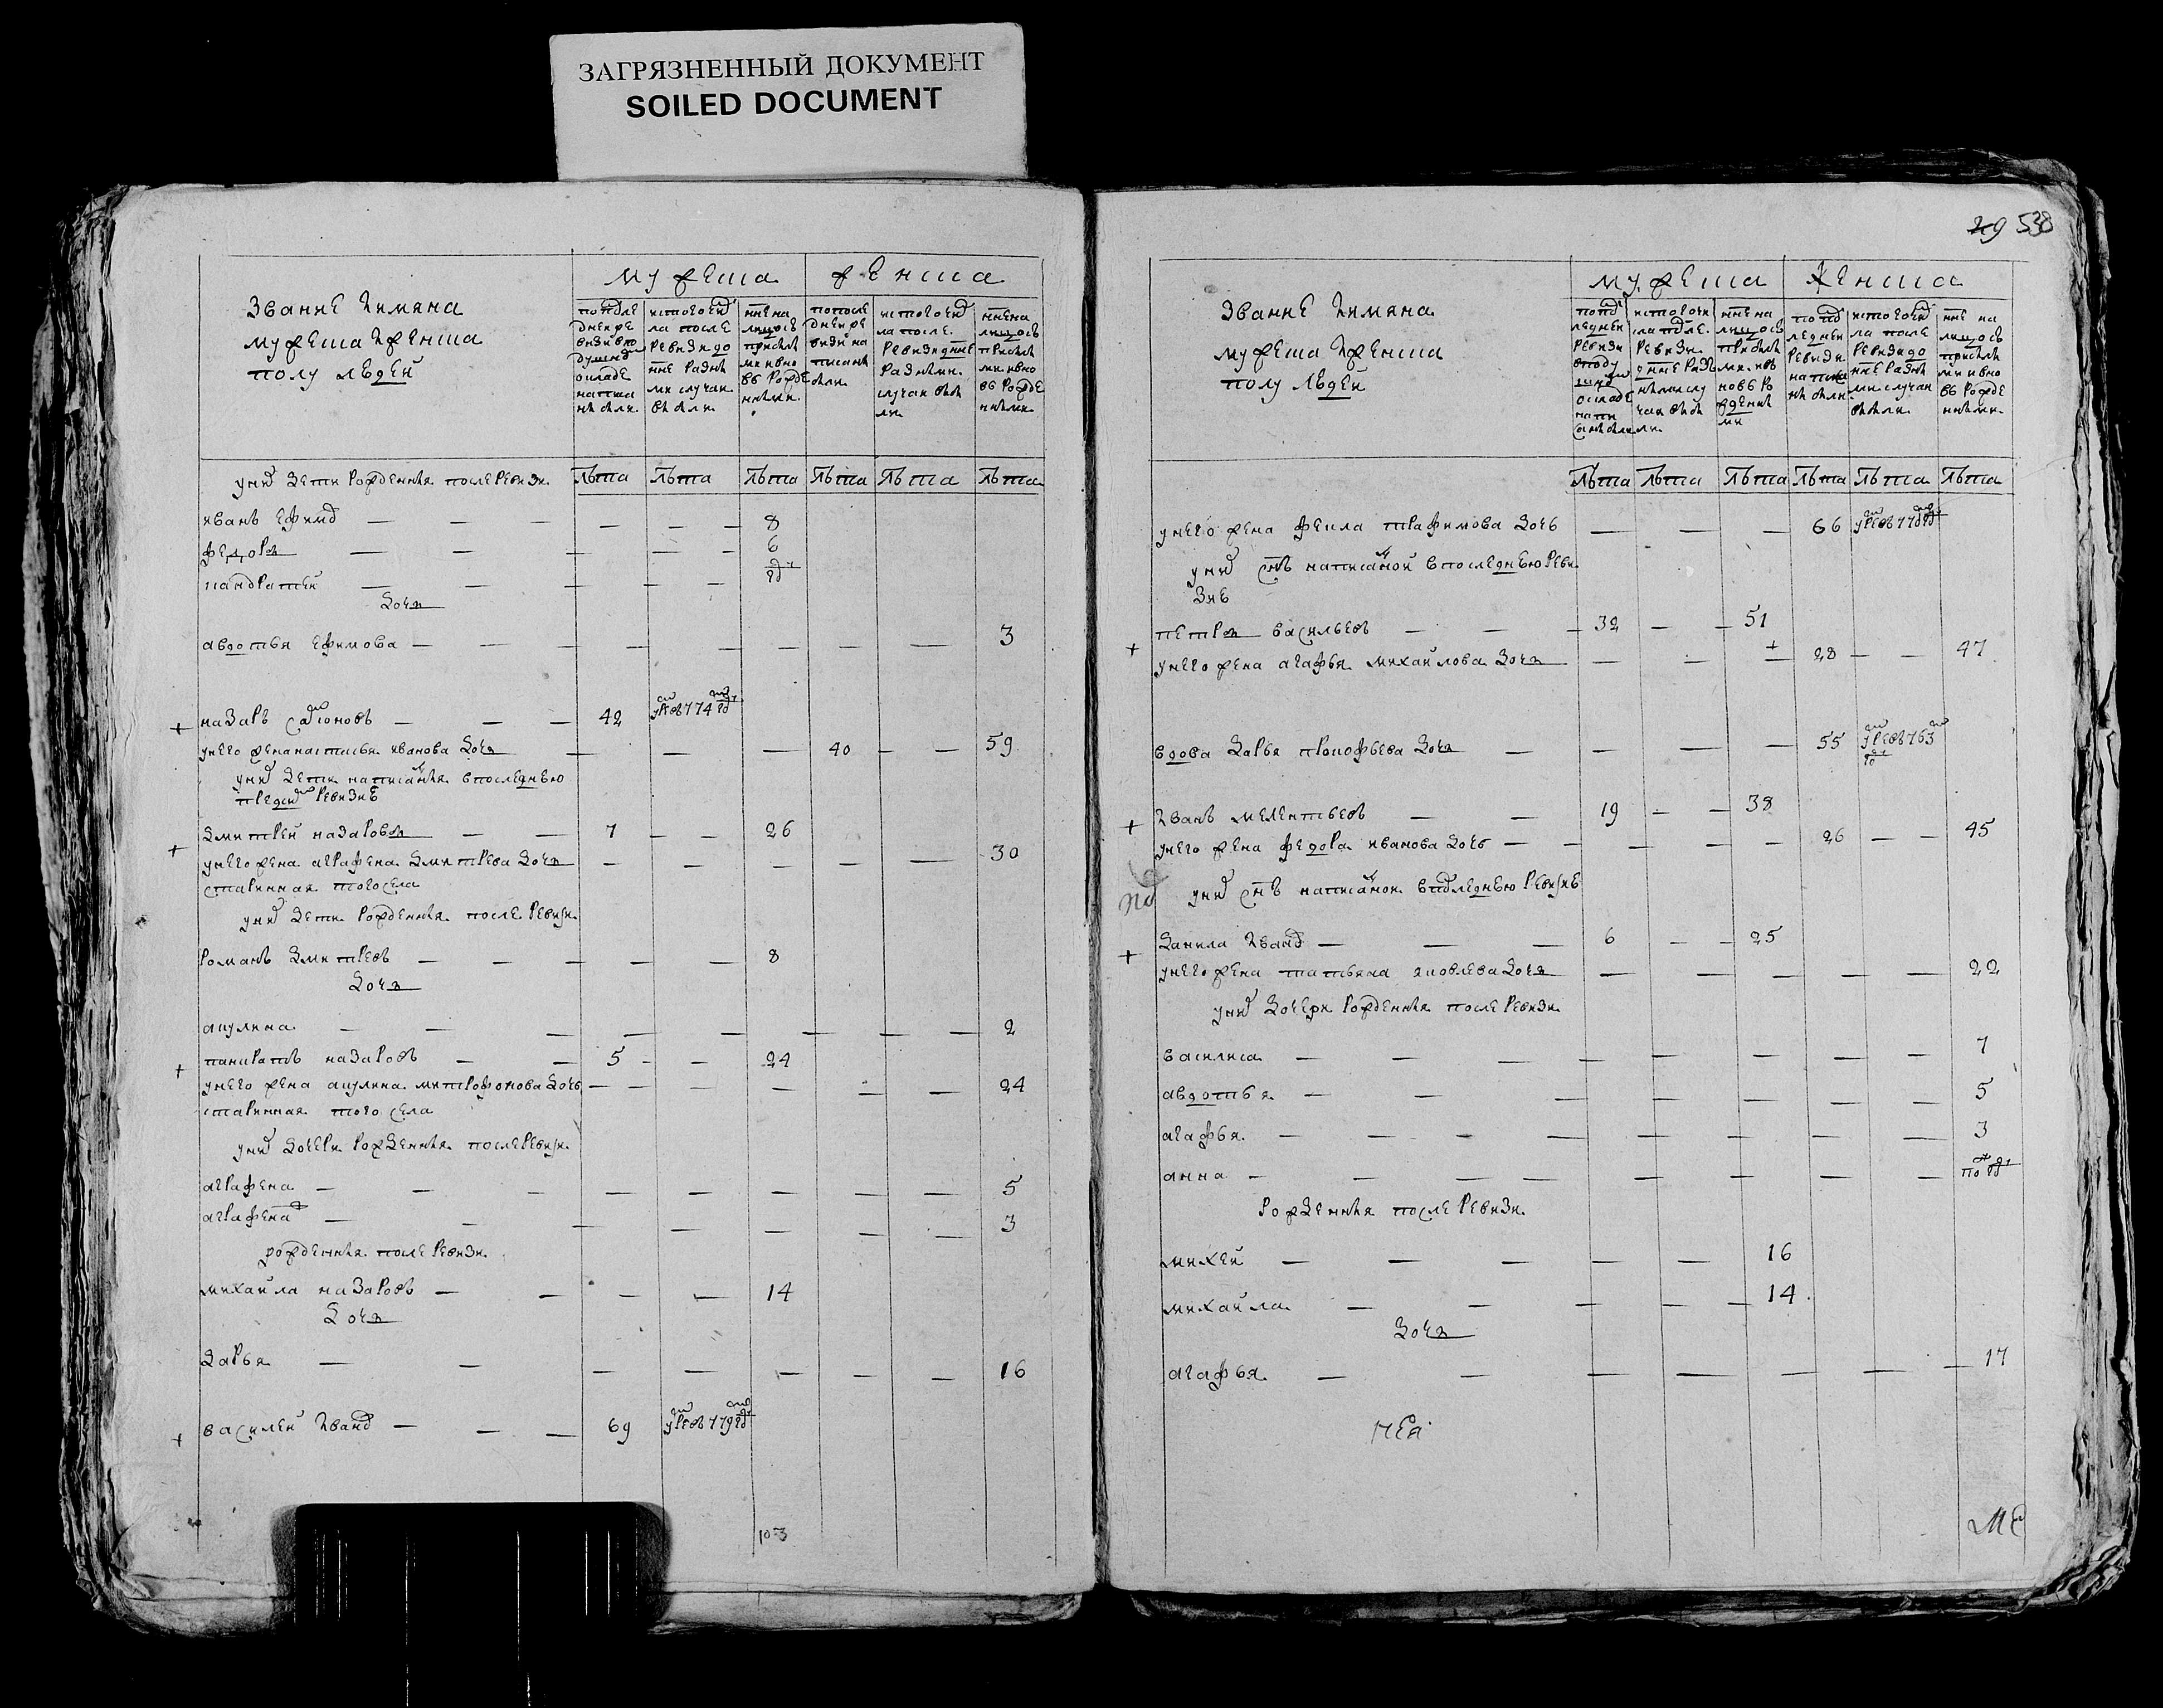 ЗАГРЯЗНЕННЫЙ ДОКУМЕНТ
SOILED DOCUMENT
звание и имяна
мужеска и женска
полу людей
мужеска
женска
по последней ревизии в подушном окладе написаны были
ис того числа после ревизии до ныне разными случаи выбыли
ныне на лицо с прибылыми и вновь рожденными
по последней ревизии написаны были
ис того числа после ревизии до ныне разными случаи выбыли
ныне на лицо с прибылыми и вновь рожденными
у них дети рожденныя после ревизи
лѣта лѣта лѣта лѣта лѣта лѣта
иванъ ефимо — — — — — — 8
федоръ — — — — — 6
кандратей — — — — — —
дочь
авдотья ефимова — — — — — — — — — 3
+ назаръ — — — 42 774
у него жена настасья иванова дочь — — — 40 — — 59
у них дети написанныя в последнюю
пред сим ревизию
+ дмитрей назаровъ — — 7 — — 26
у него жена аграфена дмитрева дочь — — — — — 30
старинная того села
у них дети рожденныя после ревизи
романъ дмитревъ — — — — — 8
дочь
акулина — — — — — — — — 2
+ панкратъ назаровъ — — 5 - — 24
у него жена акулина митрофонова дочь — — — — — — 24
старинная того села
у них дочери рожденныя после ревизи
аграфена — — — — — — — — 5
аграфена — — — — — — — 3
рожденныя после ревизи
михайла назаровъ — — — — 14
дочь
дарья — — — — — — — 16
+ василей ивано — — — 69 779
103
29 538
звание и имяна
мужеска и женска
полу людей
мужеска
женска
по последней ревизии в подушном окладе написаны были
ис того числа после ревизии до ныне разными случаи выбыли
ныне на лицо с прибылыми и вновь рожденными
по последней ревизии написаны были
ис того числа после ревизии до ныне разными случаи выбыли
ныне на лицо с прибылыми и вновь рожденными
лѣта лѣта лѣта лѣта лѣта лѣта
у него жена фекла трафимова дочь — — — 66
у них сынъ написаной в последнюю реви
зию
+ петръ васильевъ — — — 32 — — 51
у него жена агафья михайлова дочь — — — 28 — — 47
вдова дарья прокофьева дочь — — — — 55 763
+ иванъ мелентьевъ — — 19 — — 38
у него жена федора иванова дочь — — — — — 26 — — 45
у них сынъ написаной в последнюю ревизию
+ данила ивано — — — 6 — — 25
у него жена татьяна яковлева дочь — — — — — — 22
у них дочери рожденныя после ревизи
василиса — — — — — — — — 7
авдотья — — — — — — — — 5
агафья — — — — — — — — 3
анна — — — — — — — — по
рожденныя после ревизи
михей — — — — — 16
михайла — — — — — 14
дочь
агафья — — — — — — — 17